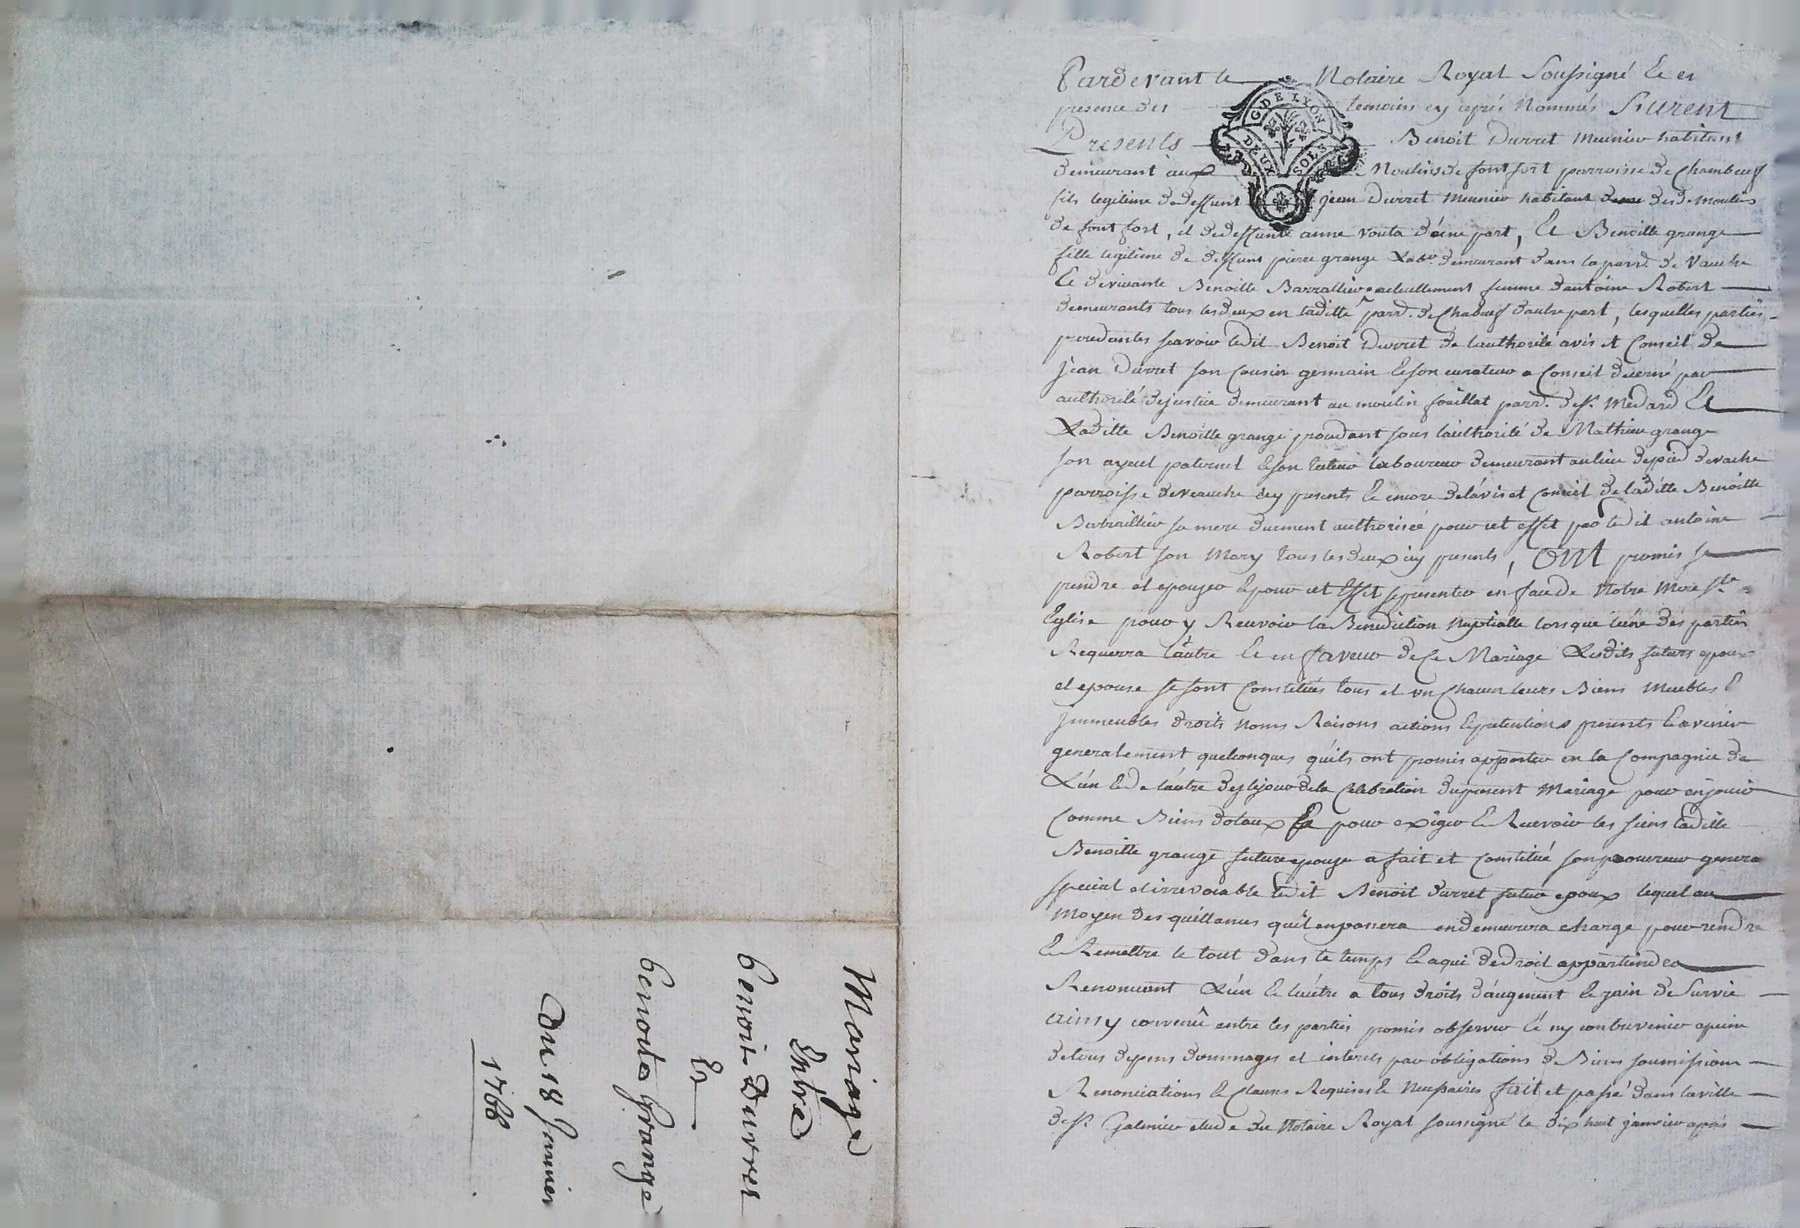 Mariage
Entre
benoit Durret
Et
benoite grange
Du 18 Janvier
1768
Pardevant le Notaire Royal Soussigné Et en
presence des temoins cy après Nommés Furent
Presents Benoit Durret Meunier habitant
demeurant aux Moulins de fontfort parroisse de Chambœuf
fils legitime de deffunt jean Durret Meunier habitant des d. Moulins
de fontfort, et de deffunte anne vouta d'une part, Et Benoitte grange
fille legitime de deffunt pierre grange Lab.r demeurant dans la parr. de Vauche
Et de vivante Benoitte Barrallier actuellement femme d'antoine Robert
demeurants tous les deux en laditte parr. de Chabœuf d'autre part, lesquelles parties
procedantes scavoir ledit Benoit Durret de l'authorité avis et Conseil de
jean Durret son Cousin germain Et son curateur a Conseil decerné par
authorité de justice demeurant au moulin fouillat parr. de St. Medard Et
Laditte Benoitte grange procedant sous l'authorité de Mathieu grange
son ayeul paternel Et son tuteur laboureur demeurant au lieu de pied de vache
parroisse de veauche icy presents Et encore de l'avis et Conseil de laditte Benoitte
Barraillier sa mere duement authorisée pour cet effet par ledit antoine
Robert son Mary tous les deux icy presents, Ont promis se
prendre et epouser Et pour cet Effet se presenter en face de Notre Mere Ste.
Eglise pour y Recevoir la Benediction Nuptialle lorsque l'une des parties
Requerra l'autre Et en faveur de Ce Mariage Lesdits futurs epoux
et epouse se sont Constitués tous et un Chacun leurs Biens Meubles Et
jmmeubles droits Noms Raisons actions Et pretentions presents Et avenir
generalement quelconques qu'ils ont promis apporter en la Compagnie de
L'un Et de l'autre des le jour de la Celebration du present Mariage pour en jouir
Comme Biens dotaux Et pour exiger Et Recevoir les siens laditte
Benoitte grange future epouse a fait et Constitué son procureur general
special et irrevocable ledit Benoit durret futur epoux lequel au
Moyen des quittances qu'il en passera en demeurera chargé pour rendre
Et Remettre le tout dans le temps Et a qui de droit appartiendra
Renoncant L'un Et l'autre a tous droits d'augment Et gain de Survie
ainsy convenu entre les parties promis observer Et ny contrevenir a peine
de tous depens dommages et interets par obligations de Biens soumissions
Renonciations Et Clauses Requises Et Necessaires fait et passé dans la ville
de St. Galmier etude du Notaire Royal soussigné le dix huit janvier après
G. DE LYON
DEUX SOLS